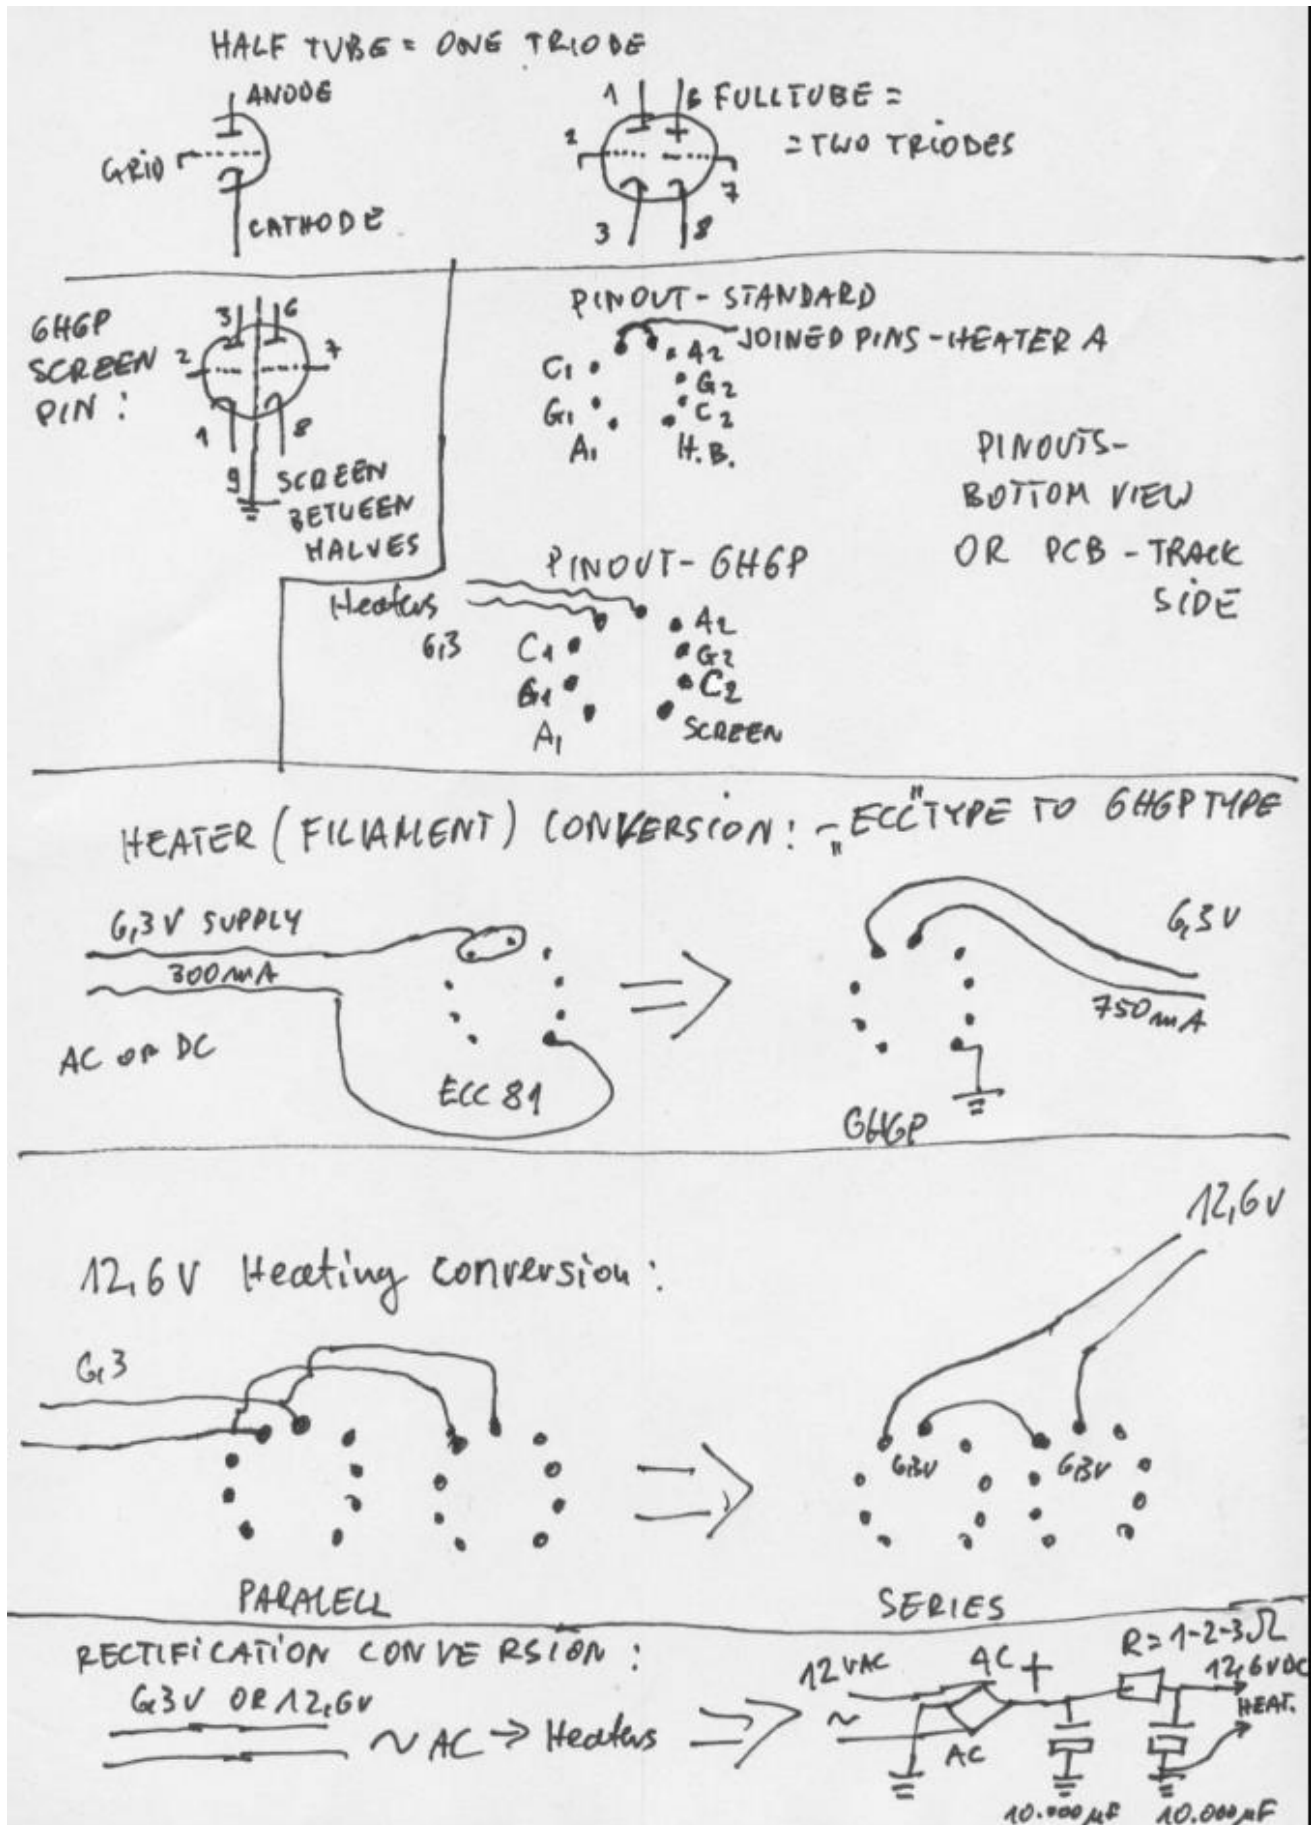 HALF TUBE = ONE TRIODE
ANODE
GRID
CATHODE
1
6
FULLTUBE =
= TWO TRIODES
2
7
3
8
6H6P
SCREEN
PIN :
3
6
2
7
1
8
9
SCREEN
BETWEEN
HALVES
PINOUT - STANDARD
JOINED PINS - HEATER A
C1
A2
G2
G1
C2
A1
H.B.
PINOUTS -
BOTTOM VIEW
OR PCB - TRACK
SIDE
PINOUT - 6H6P
Heaters
6,3
C1
A2
G2
G1
C2
A1
SCREEN
HEATER (FILIAMENT) CONVERSION : - "ECC" TYPE TO 6H6P TYPE
6,3V SUPPLY
300mA
AC OR DC
ECC 81
6,3V
750mA
6H6P
12,6V Heating conversion :
12,6V
6,3
6,3V
6,3V
PARALELL
SERIES
RECTIFICATION CONVERSION :
6,3V OR 12,6V
~ AC → Heaters
12VAC
~
AC
+
AC
R = 1-2-3Ω
12,6VDC
HEAT.
10.000µF
10.000µF